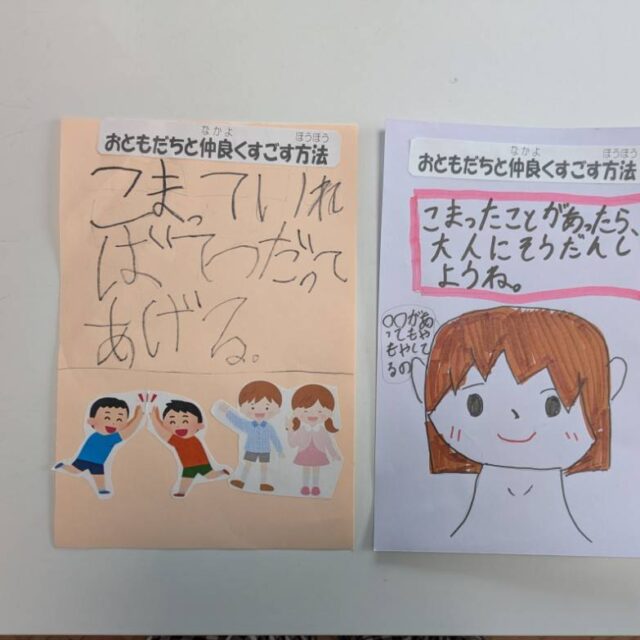 なかよ ほうほう
おともだちと仲良くすごす方法
こまっていれ
ばてつだって
あげる。
なかよ ほうほう
おともだちと仲良くすごす方法
こまったことがあったら、
大人にそうだんし
ようね。
〇〇があ
ってもや
もやして
るの